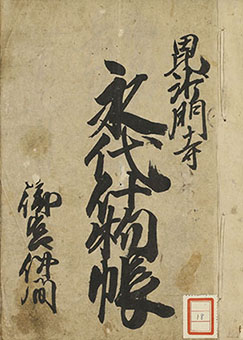 毘沙門寺
永代什物帳
仲間
18